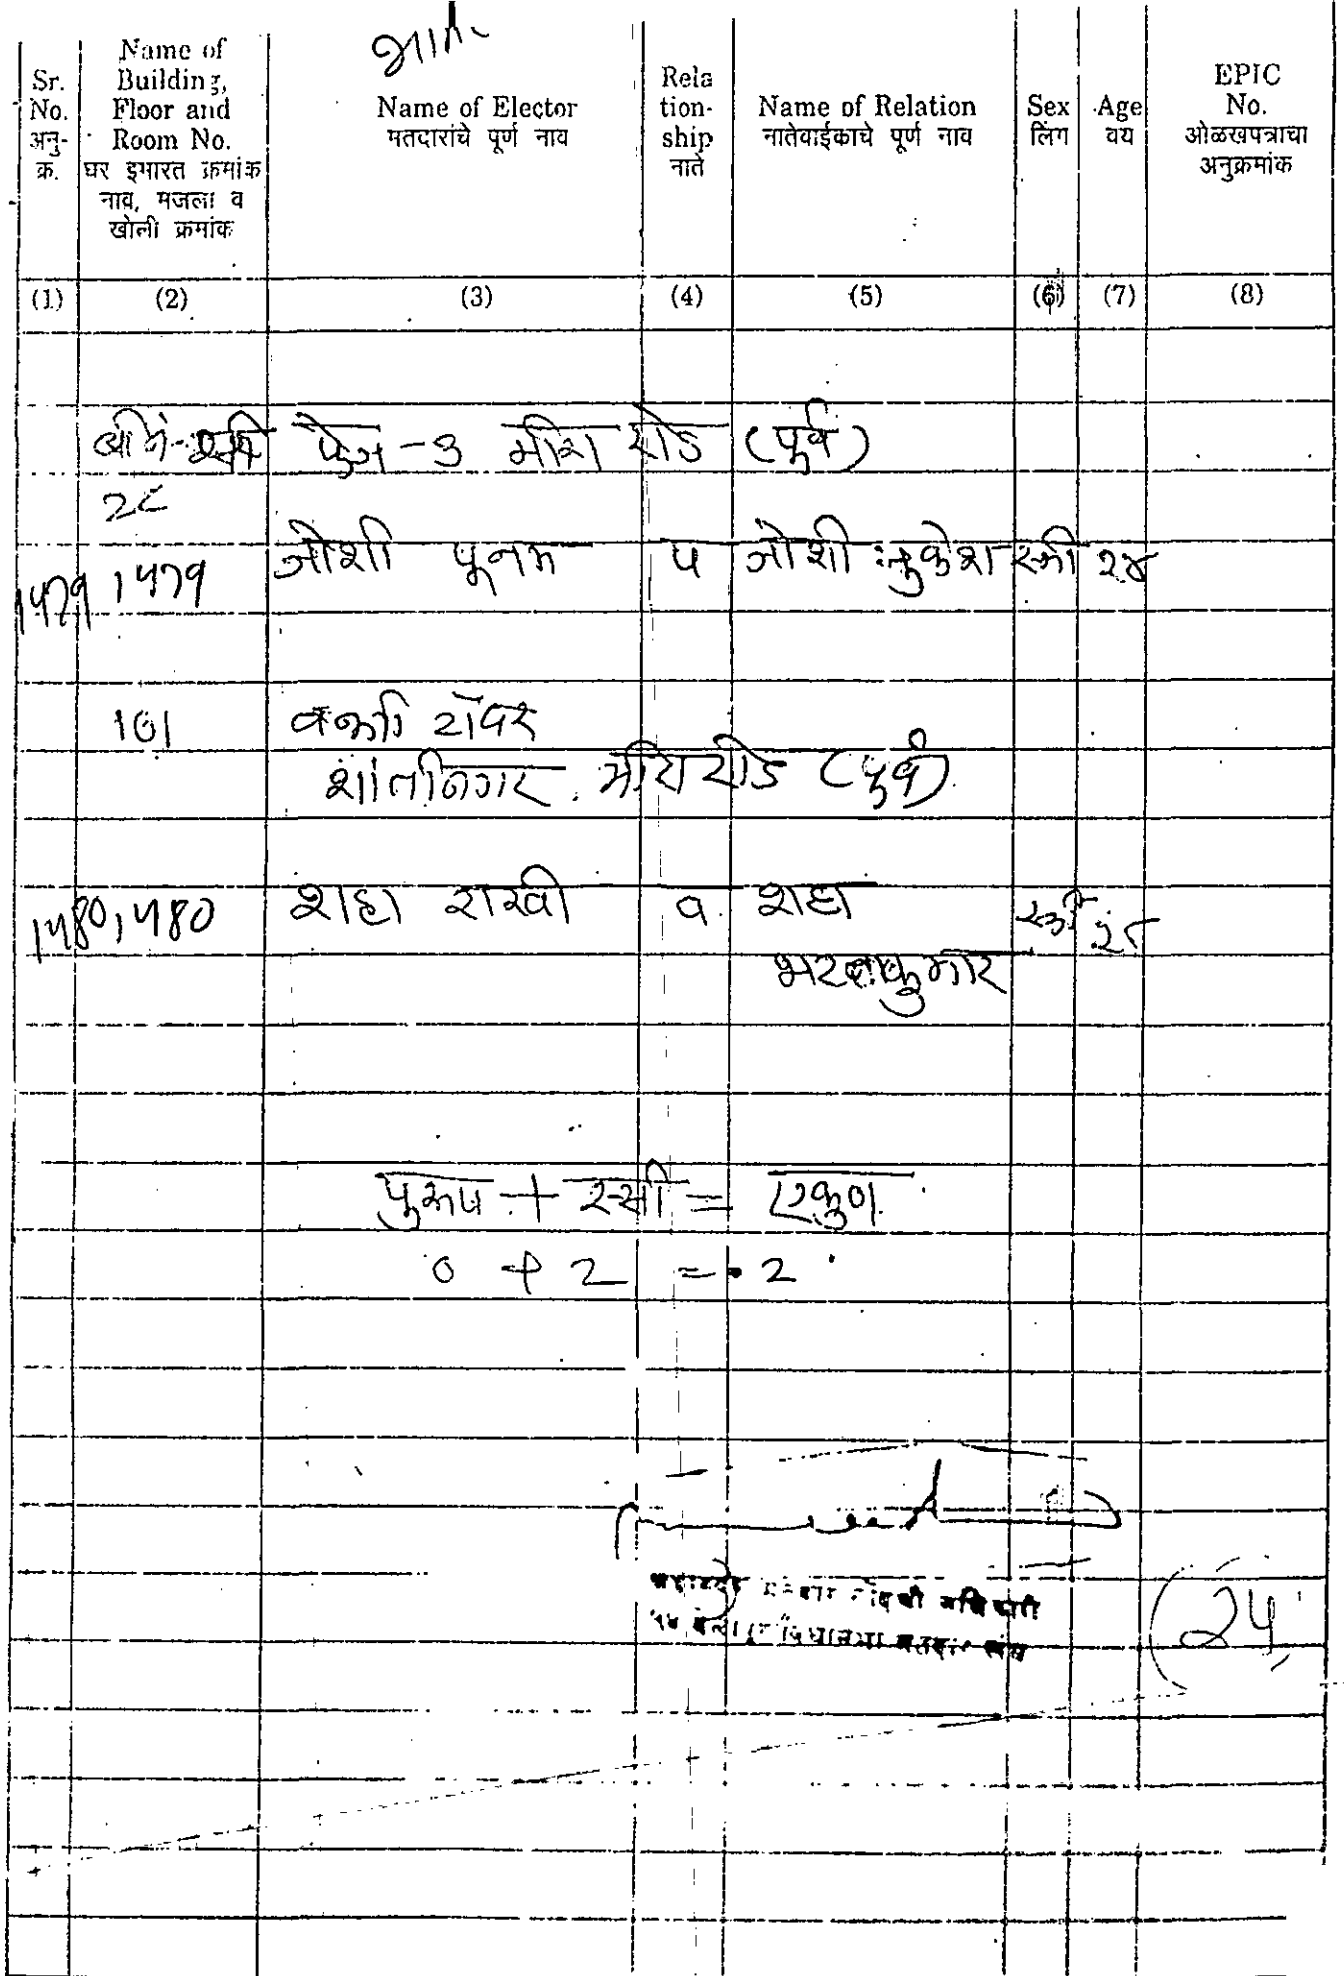 Sr. No. अनु- क्र.
Name of Building, Floor and Room No. घर इमारत क्रमांक नाव, मजला व खोली क्रमांक
Name of Elector मतदारांचे पूर्ण नाव
Rela tion- ship नाते
Name of Relation नातेवाईकाचे पूर्ण नाव
Sex लिंग
Age वय
EPIC No. ओळखपत्राचा अनुक्रमांक
(1) (2) (3) (4) (5) (6) (7) (8)
फेज - 3 मीरा रोड (पूर्व)
1479 1479 जोशी पूनम प जोशी मुकेश स्त्री २४
101 टॉवर
शांतीनगर मीरा रोड (पूर्व)
1480 1480 शहा राखी व शहा स्त्री २८
भरतकुमार
पुरूष + स्त्री = एकुण
0 + 2 = 2
नोंदणी अधिकारी
विधानसभा मतदार संघ